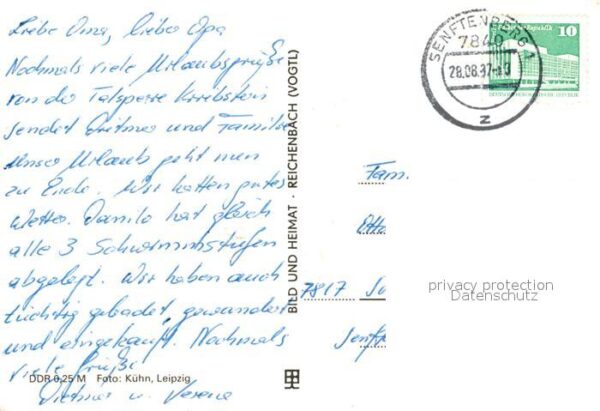 Liebe Oma, lieber Opa
Nochmals viele Urlaubsgrüße
von der Talsperre Kriebstein
sendet Dietmar und Familie
Unser Urlaub geht nun
zu Ende. Wir hatten gutes
Wetter. Danilo hat gleich
alle 3 Schwimmstufen
abgelegt. Wir haben auch
tüchtig gebadet, gewandert
und eingekauft. Nochmals
viele Grüße
Dietmar u. Verena
DDR 0,25 M Foto: Kühn, Leipzig
BILD UND HEIMAT · REICHENBACH (VOGTL)
SENFTENBERG 1
7840
28.08.87
z
10
Fam.
Otto
7817 So
Senft
privacy protection
Datenschutz